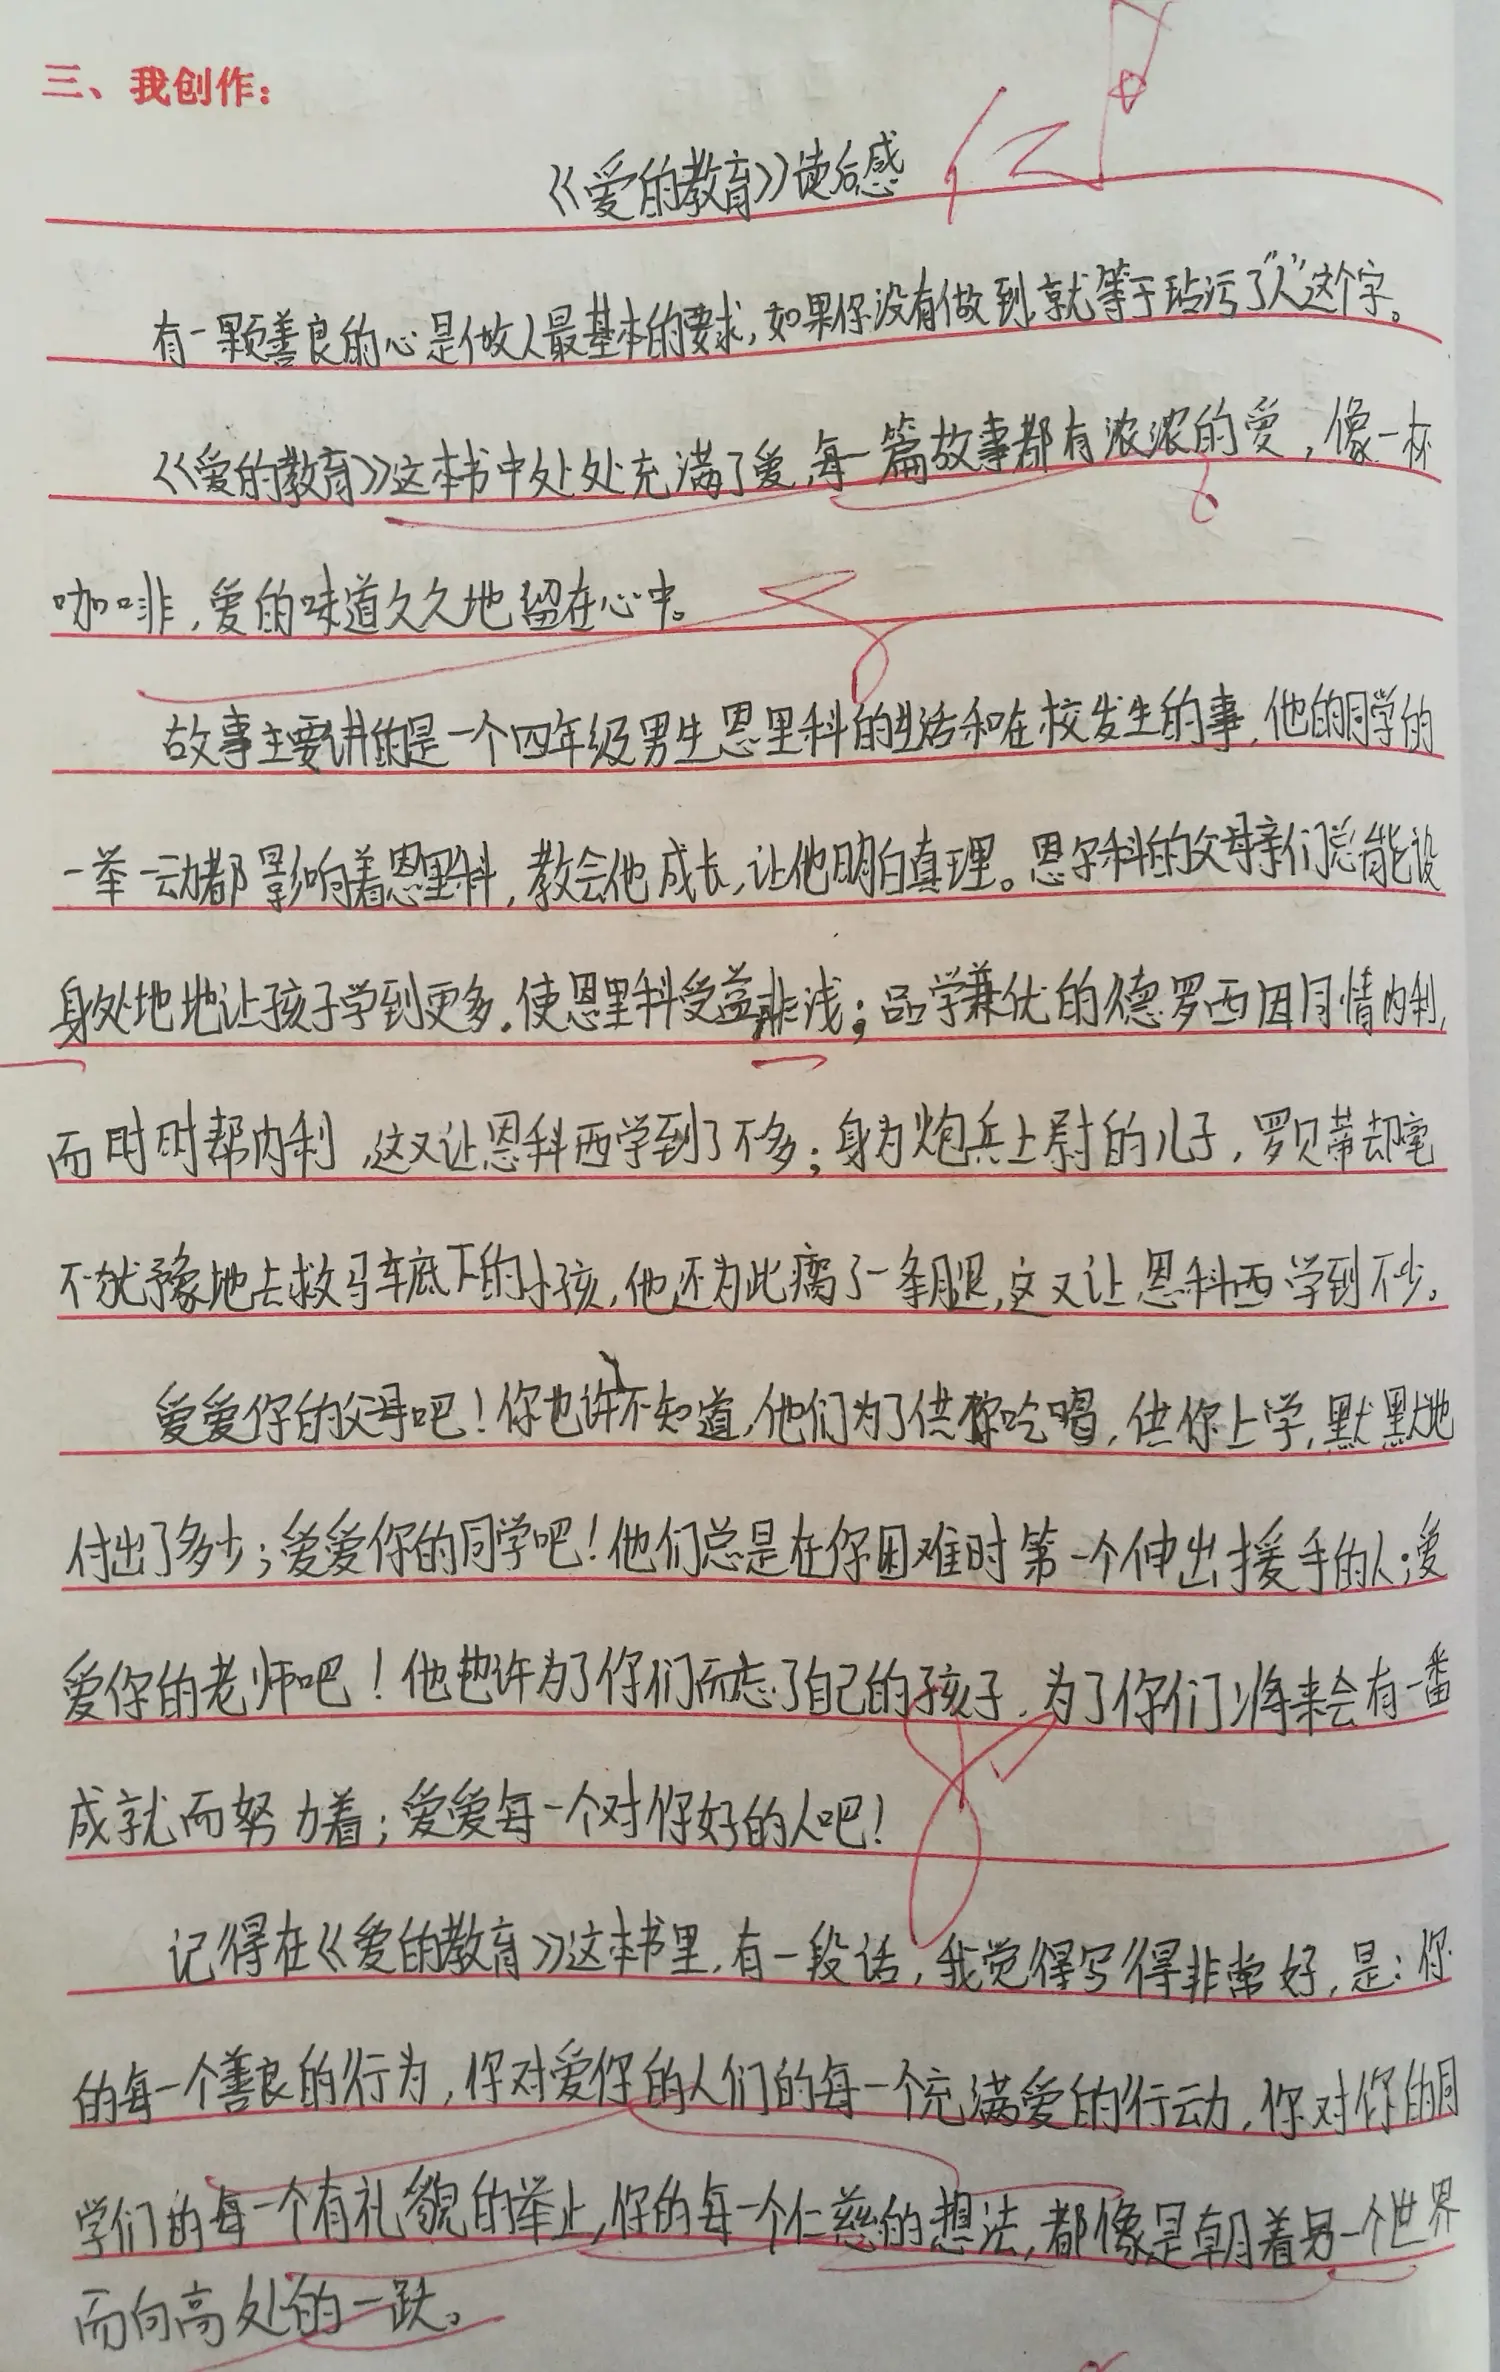 三、我创作：
《爱的教育》读后感
有一颗善良的心是做人最基本的要求，如果你没有做到，就等于玷污了“人”这个字。
《爱的教育》这本书中处处充满了爱，每一篇故事都有浓浓的爱，像一杯
咖啡，爱的味道久久地留在心中。
故事主要讲的是一个四年级男生恩里科的生活和在校发生的事，他的同学的
一举一动都影响着恩里科，教会他成长，让他明白真理。恩尔科的父母亲们总能设
身处地地让孩子学到更多。使恩里科受益非浅；品学兼优的德罗西因同情内利，
而时时帮内利，这又让恩科西学到了不多；身为炮兵上尉的儿子，罗贝蒂却毫
不犹豫地去救马车底下的小孩，他还为此瘸了一条腿，这又让恩科西学到不少。
爱爱你的父母吧！你也许不知道，他们为了供你吃喝，供你上学，默默地
付出了多少；爱爱你的同学吧！他们总是在你困难时第一个伸出援手的人；爱
爱你的老师吧！他也许为了你们而忘了自己的孩子，为了你们将来会有一番
成就而努力着；爱爱每一个对你好的人吧！
记得在《爱的教育》这本书里，有一段话，我觉得写得非常好，是：你
的每一个善良的行为，你对爱你的人们的每一个充满爱的行动，你对你的同
学们的每一个有礼貌的举止，你的每一个仁慈的想法，都像是朝着另一个世界
而向高处的一跃。